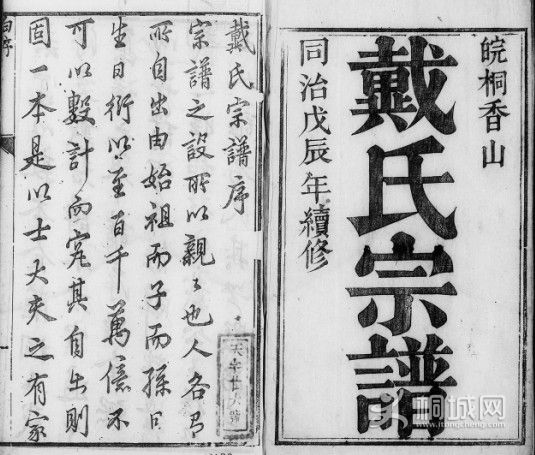 皖桐香山
戴氏宗譜
同治戊辰年續修
戴氏宗譜序
宗譜之設所以親〻也人各有
所自出由始祖而子而孫日
生日衍以至百千萬億不
可以數計而究其自出則
固一本是以士大夫之有家
桐城网
www.itongcheng.com